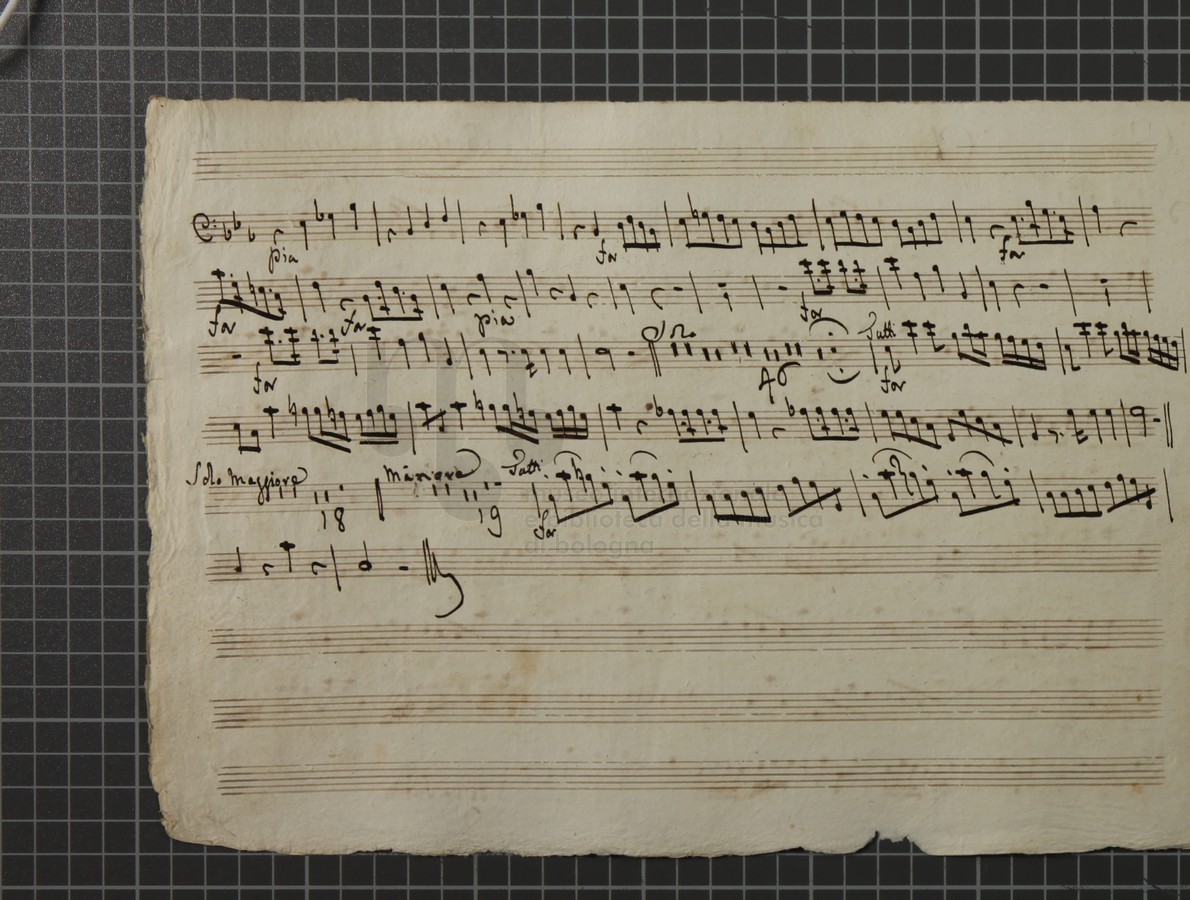 pia for for
for for pia for
for Solo 46 Tutti for
Solo Maggiore 18 Minore 19 Tutti for
biblioteca della musica
di bologna